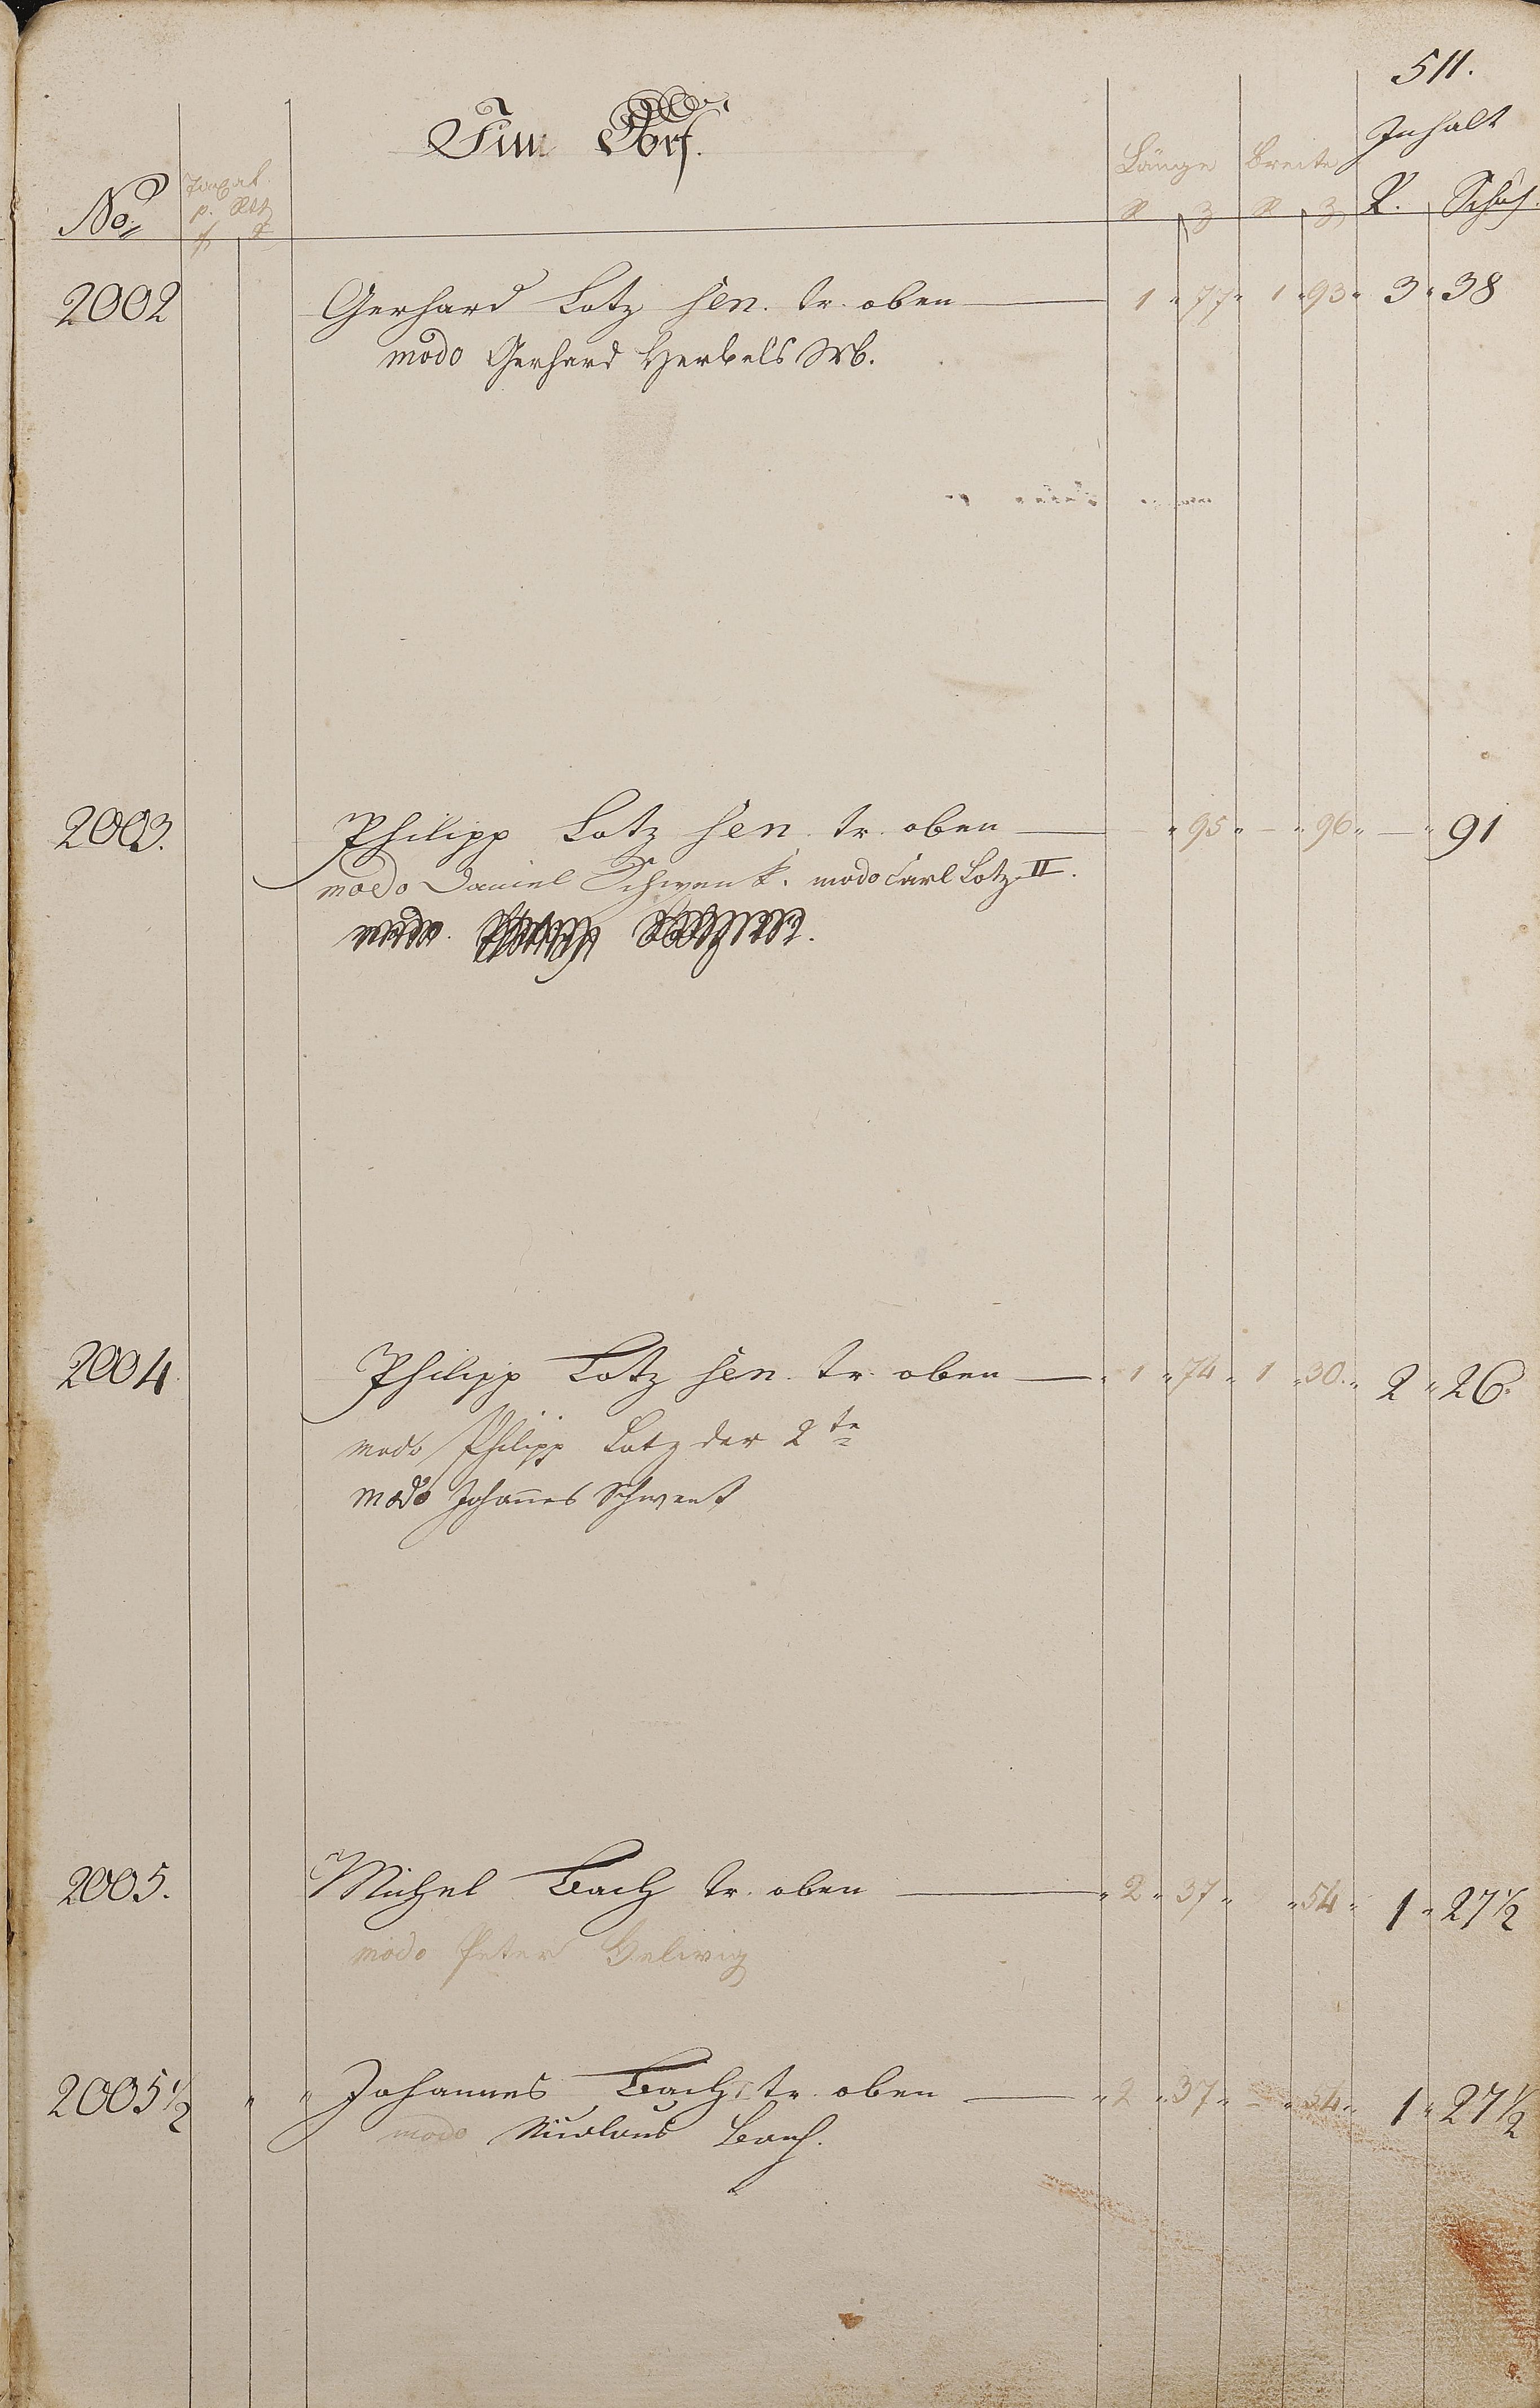 511.
Im Dorf.
Inhalt
Länge Breite
No. Taxat. p. R. Schuh
2002 Gerhard Lotz sen. tr. oben — 1 " 77 " 1 " 93 " 3 " 38
modo Gerhard Herbels Wb.
2003. Philipp Lotz sen. tr. oben — — " 95 " — " 96 " — " 91
modo Daniel Schwenk. modo Carl Lotz II.
modo
2004 Philipp Lotz sen. tr. oben — " 1 " 74 " 1 " 30 " 2 " 26.
modo Philipp Lotz der 2te
modo Johannes Schwenk
2005. Michel Bach tr. oben — " 2 " 37 " " 54 " 1 " 27 1/2
modo Peter Helwig
2005 1/2 " " Johannes Bach tr. oben — " 2 " 37 " — " 54 " 1 " 27 1/2
modo Nicolaus Bach.